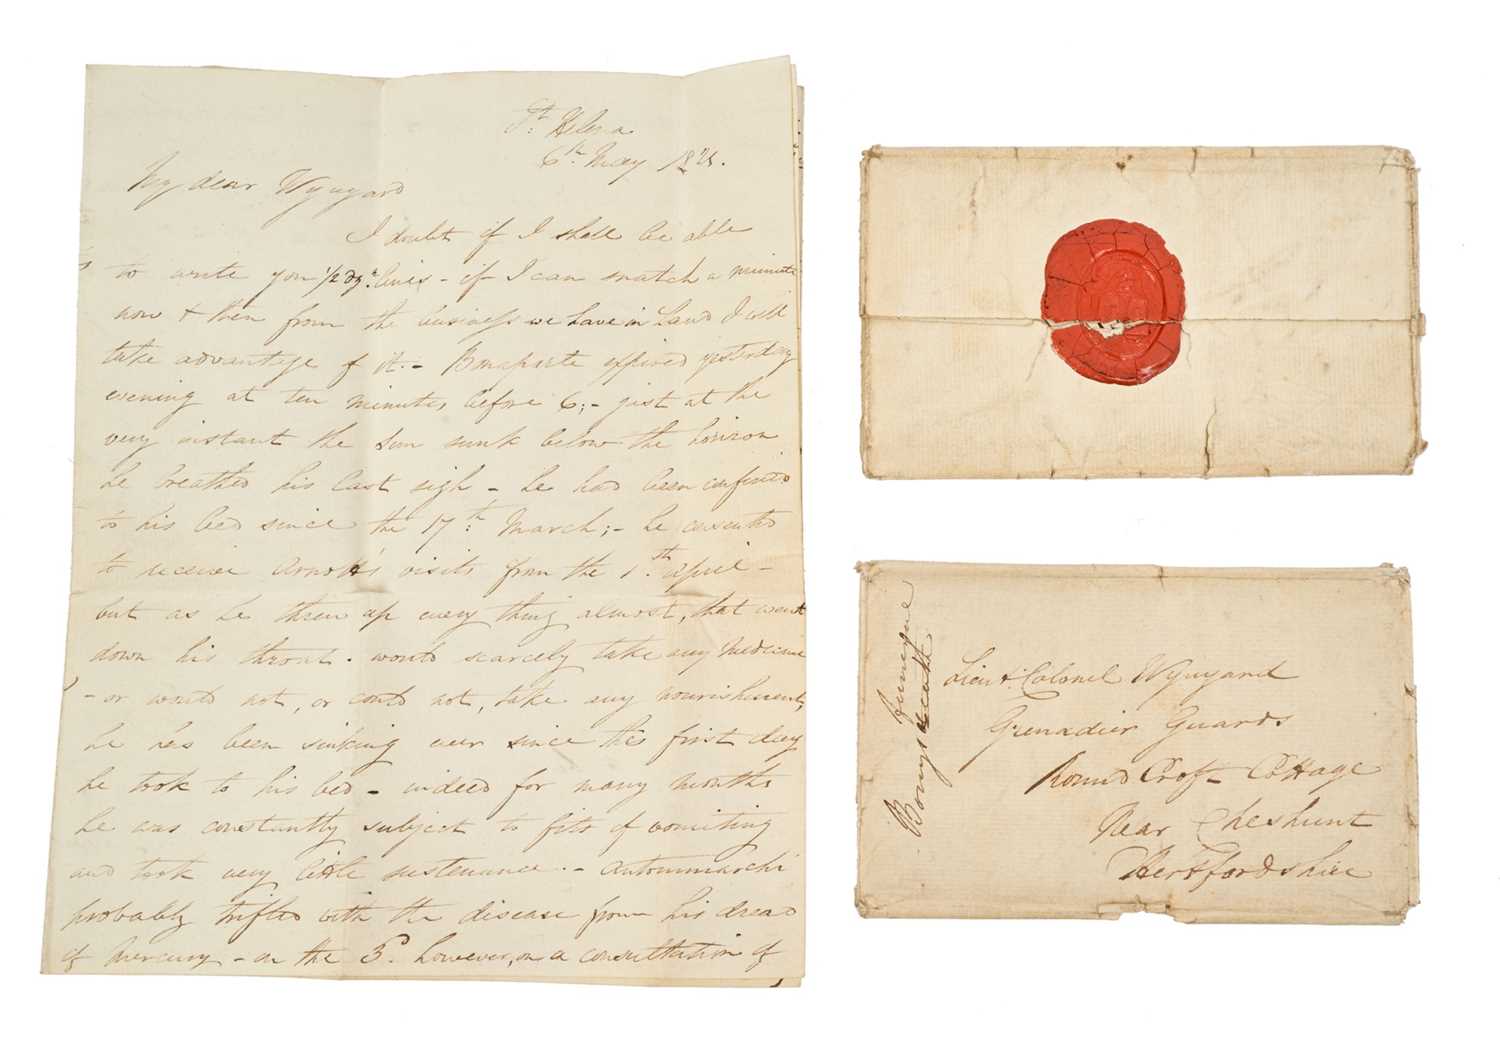 St. Helena
6th May 1821.
My dear Wynyard
I doubt if I shall be able
to write you 1/2 dzn. lines - if I can snatch a minute
now & then from the business we have in hand I will
take advantage of it. - Bonaparte expired yesterday
evening at ten minutes before 6; - just at the
very instant the Sun sunk below the horizon
he breathed his last sigh - he had been confined
to his bed since the 17th. March; - he consented
to receive Arnott's visits from the 1st. April -
but as he threw up every thing almost, that went
down his throat - would scarcely take any Medicine
- or would not, or could not, take any nourishment,
he has been sinking ever since the first day
he took to his bed - indeed for many months
he was constantly subject to fits of vomiting
and took very little sustenance. - Autommarchi
probably trifled with the disease from his dread
of Mercury - on the 3d. however, on a consultation of
Lieut. Colonel Wynyard
Grenadier Guards
Round Croft Cottage
Near Cheshunt
Hertfordshire